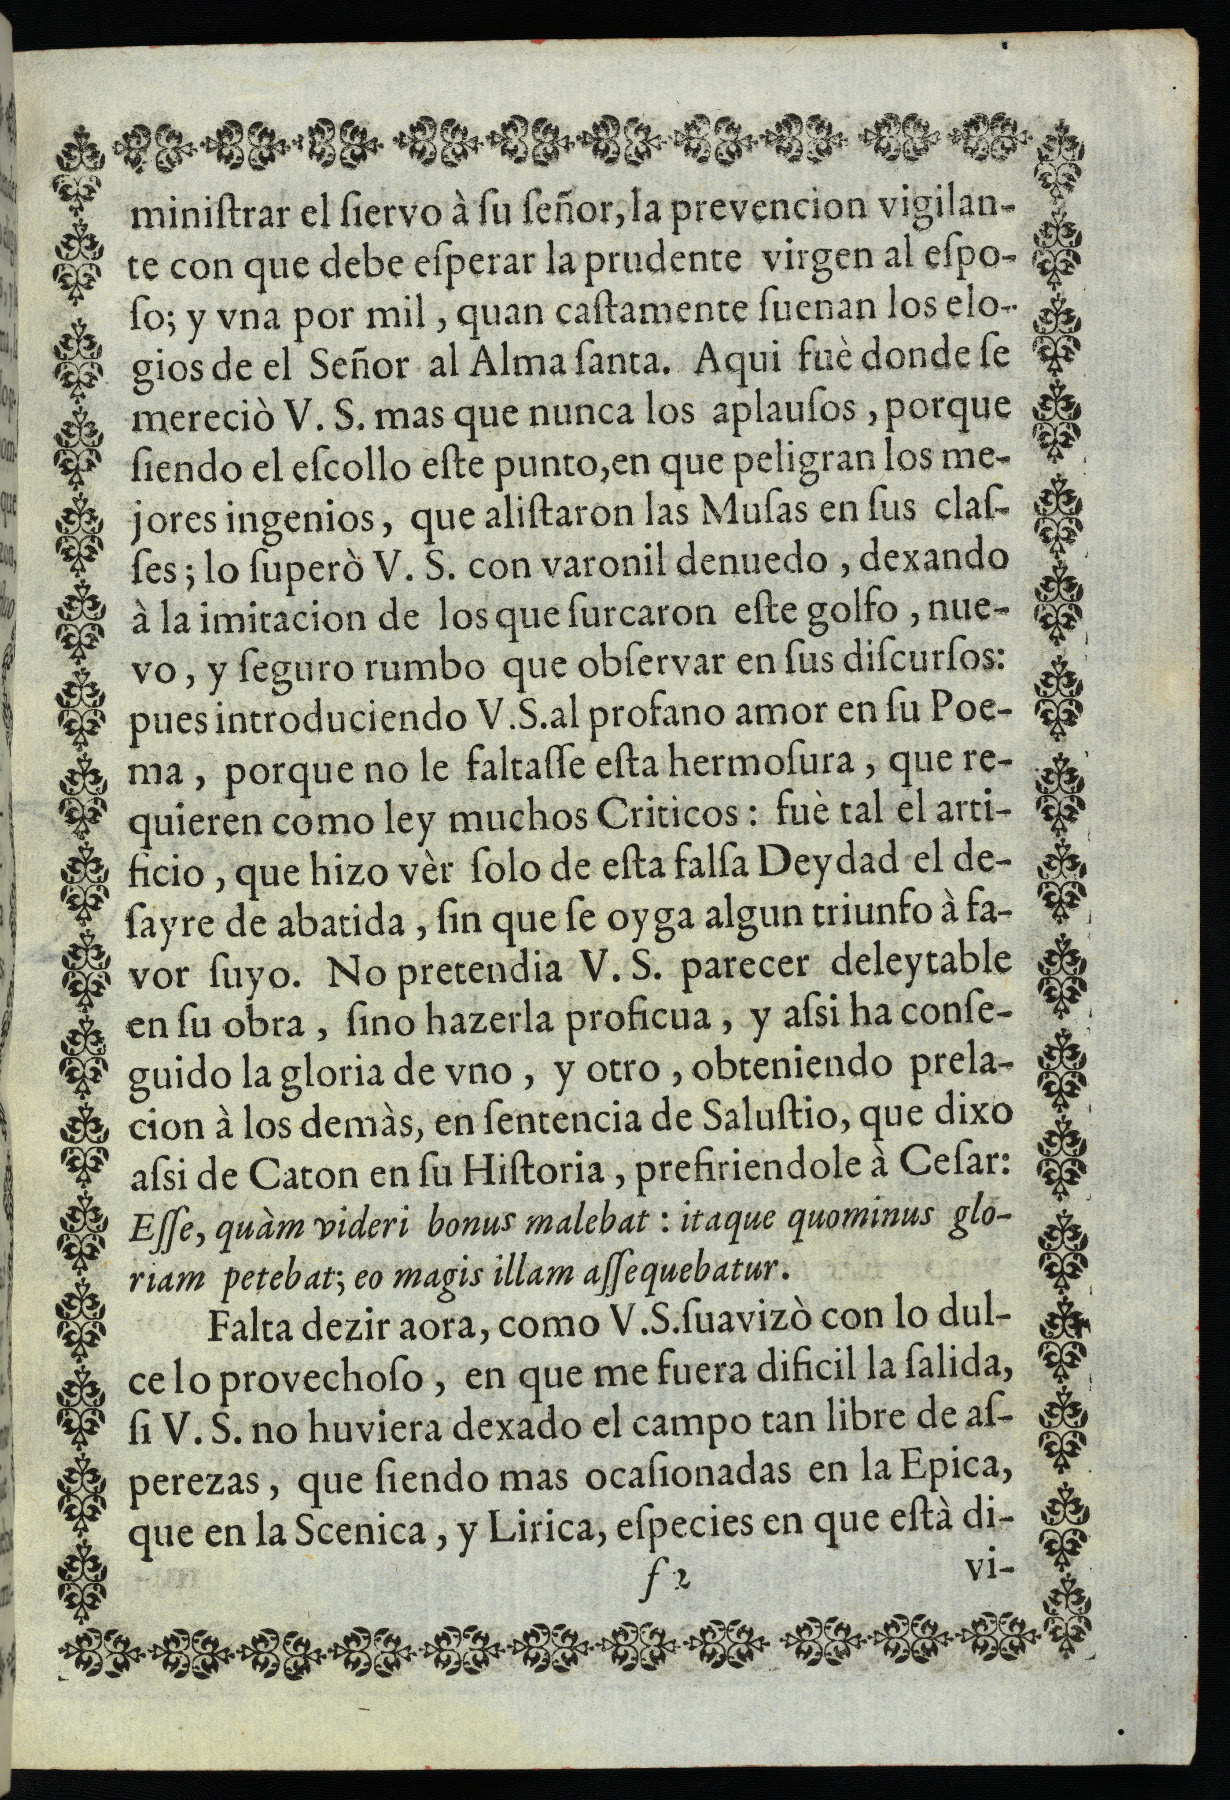 miniſtrar el ſiervo à ſu ſeñor, la prevencion vigilan-
te con que debe eſperar la prudente virgen al eſpo-
ſo; y vna por mil, quan caſtamente ſuenan los elo-
gios de el Señor al Alma ſanta. Aqui fuè donde ſe
mereciò V. S. mas que nunca los aplauſos, porque
ſiendo el eſcollo eſte punto, en que peligran los me-
jores ingenios, que aliſtaron las Muſas en ſus claſ-
ſes; lo ſuperò V. S. con varonil denuedo, dexando
à la imitacion de los que ſurcaron eſte golfo, nue-
vo, y ſeguro rumbo que obſervar en ſus diſcurſos:
pues introduciendo V.S. al profano amor en ſu Poe-
ma, porque no le faltaſſe eſta hermoſura, que re-
quieren como ley muchos Criticos: fuè tal el arti-
ficio, que hizo vèr ſolo de eſta falſa Deydad el de-
ſayre de abatida, ſin que ſe oyga algun triunfo à fa-
vor ſuyo. No pretendia V. S. parecer deleytable
en ſu obra, ſino hazerla proficua, y aſsi ha conſe-
guido la gloria de vno, y otro, obteniendo prela-
cion à los demàs, en ſentencia de Saluſtio, que dixo
aſsi de Caton en ſu Hiſtoria, prefiriendole à Ceſar:
Eſſe, quàm videri bonus malebat: itaque quominus glo-
riam petebat; eo magis illam aſſequebatur.
Falta dezir aora, como V.S. ſuavizò con lo dul-
ce lo provechoſo, en que me fuera dificil la ſalida,
ſi V. S. no huviera dexado el campo tan libre de aſ-
perezas, que ſiendo mas ocaſionadas en la Epica,
que en la Scenica, y Lirica, eſpecies en que eſtà di-
ſ 2
vi-